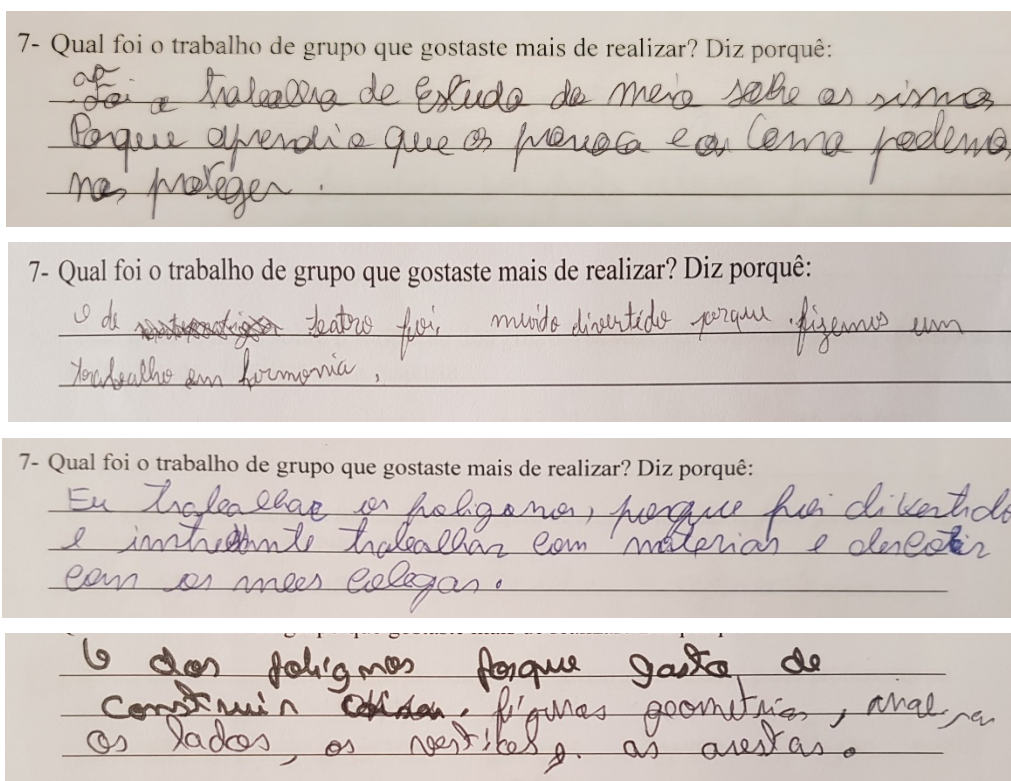 7- Qual foi o trabalho de grupo que gostaste mais de realizar? Diz porquê:
foi o trabalho de Estudo do meio sobre os sismos
Porque aprendi o que os provoca e como podemos
nos proteger.
7- Qual foi o trabalho de grupo que gostaste mais de realizar? Diz porquê:
O de teatro foi, muido divertido porque fizemos um
trabalho em hormonia,
7- Qual foi o trabalho de grupo que gostaste mais de realizar? Diz porquê:
Eu trabalhar os poligonos, porque foi divertido
e trabalhar com materiais e
com os meus colegas.
O dos polignos porque gosto de
construir figuras geometrias, analisar
os lados, os vertices, as arestas.